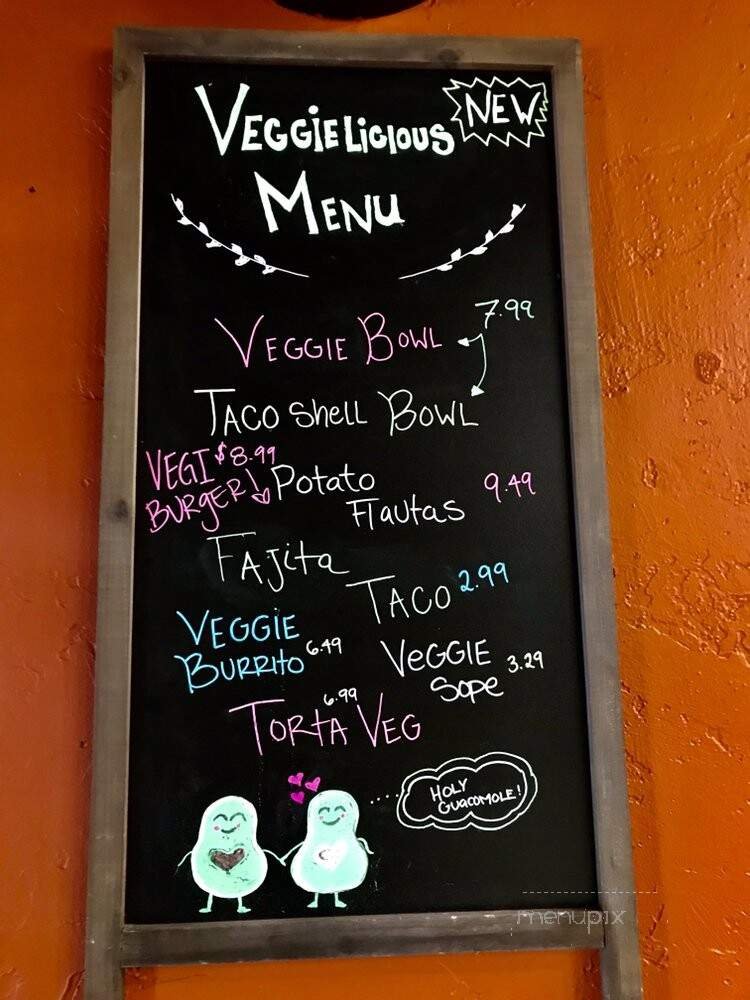 VEGGIELICIOUS NEW
MENU
7.99
VEGGIE BOWL
TACO Shell BOWL
VEGI $8.99
BURGER!
Potato
Flautas 9.49
FAJita
TACO 2.99
VEGGIE
BURRITO 6.49
VEGGIE
Sope 3.29
6.99
TORTA VEG
HOLY
GUACOMOLE!
menupix